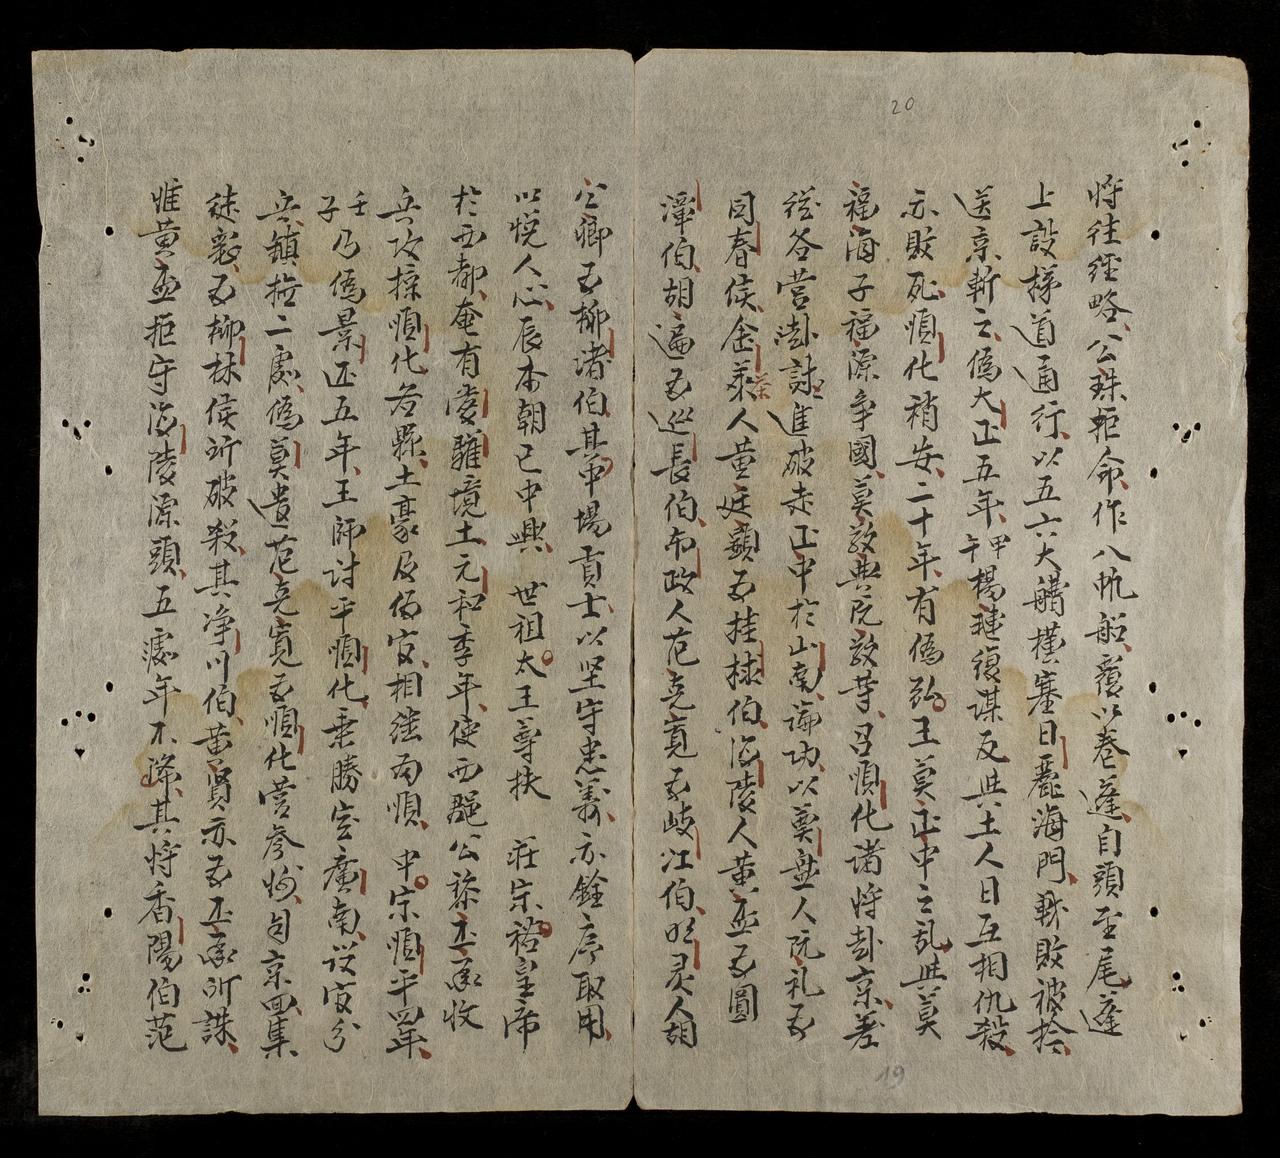 20
将往經略公珠拒命作八帆船覆以卷蓬自頭至尾蓬
上設梯道通行以五六大艚橫塞日麗海門戰敗被擒
送京斬之偽大正五年甲午楊璉復謀反與土人日互相仇殺
亦敗死順化稍安二十年有偽弘王莫正中之乱與莫
福海子福源爭國莫敬典阮敬等召順化諸將赴京差
從各營赴討進破走正中於山南論功以奠盤人阮礼為
同春侯金茶人黃廷顯為挂捄伯海陵人黃盃為圓
潭伯胡遍為巡長伯布政人范克寬為岐江伯明灵人胡
公卿為柳渚伯其第場貢士以坚守忠義亦銓序取用
以悦人心辰本朝已中興 世祖太王尊扶 莊宗裕皇帝
於西都奄有愛驩境土元和季年使西郡公黎丕承收
兵攻探順化各縣土豪及偽官相継而順 中宗順平四年
壬子乃偽景历五年王師討平順化乗勝定廣南設官分
兵鎮撫二處偽莫遣范克寬為順化營參將自京回集
徒衆為柳林侯所破殺其净川伯黃賢亦為丕承所誅
惟黃盃拒守海陵源頭五處年不降其將香陽伯范
19